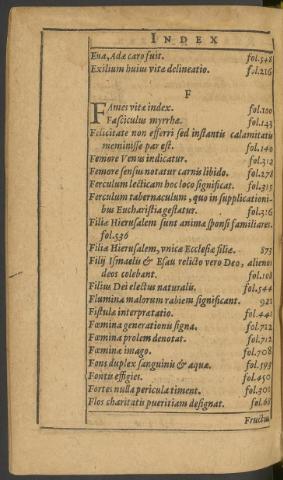 INDEX
Eua, Adæ caro fuit. fol.548
Exilium huius vitæ delineatio. fol.216
F
FAmes vitæ index. fol.100
Fasciculus myrrhæ. fol.143
Felicitate non efferri sed instantis calamitatis
meminisse par est. fol.140
Femore Venus indicatur. fol.312
Femore sensus notatur carnis libido. fol.278
Ferculum lecticam hoc loco significat. fol.315
Ferculum tabernaculum, quo in supplicationi-
bus Eucharistia gestatur. fol.316
Filiæ Hierusalem sunt animæ sponsi familiares.
fol.536
Filiæ Hierusalem, vnicæ Ecclesiæ filiæ. 873
Filij Ismaelis & Esau relicto vero Deo, alienos
deos colebant. fol.108
Filius Dei electus naturalis. fol.544
Flumina malorum rabiem significant. 921
Fistula interpretatio. fol.442
Fœmina generationis signa. fol.722
Fœmina prolem denotat. fol.712
Fœminæ imago. fol.708
Fons duplex sanguinis & aquæ. fol.593
Fontis effigies. fol.450
Fortes nulla pericula timent. fol.308
Flos charitatis pueritiam designat. fol.68
Fructus